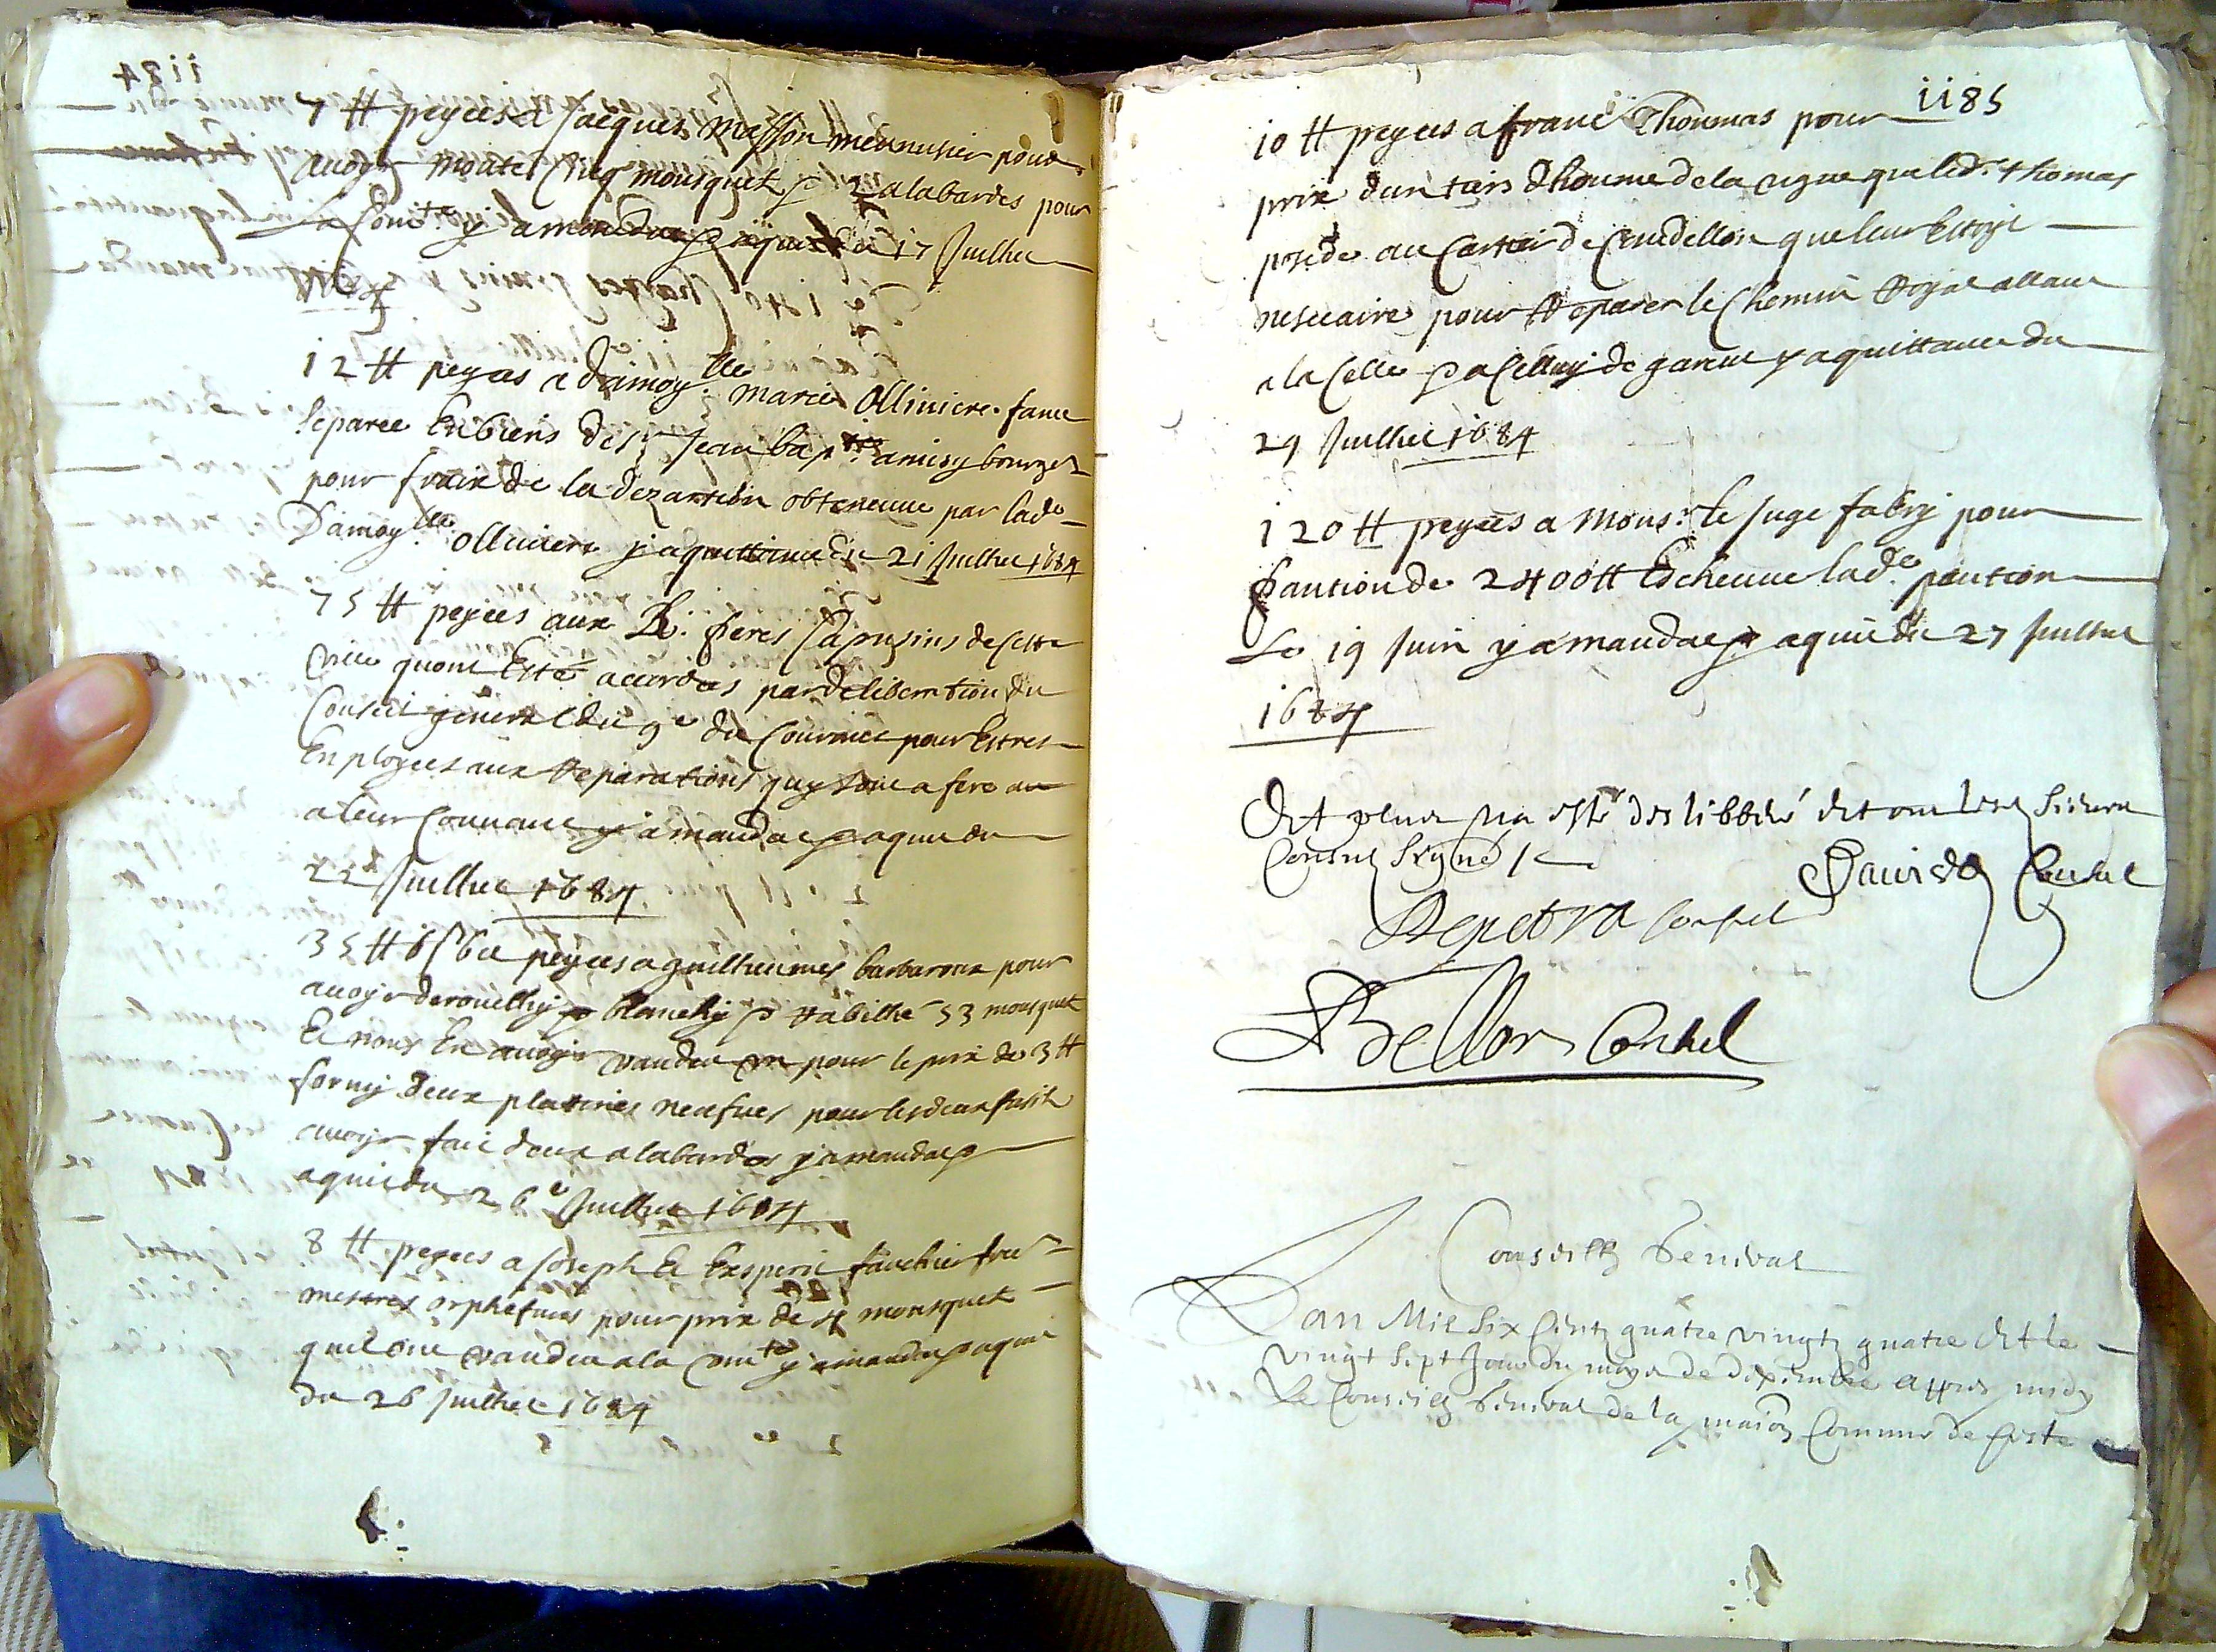 1184
7 tt peyees a Jacques Masson menusier pour
avoyr monter cinq mousquet p 2 alabardes pour
la Comte y a mandat p aquit du 17 Juilhet
1684
12 tt peyees a damoylle marie Olliviere fame
separee En biens de sr Jean bapte amisy bourges
pour fraix de la dezantion obtenue par lade
Damoylle olliviere y a quittance du 21 Juilhet 1684
75 tt peyees aux R: peres Capusins de Cette
ville quont Esté accordees par deliberation du
Conseil general du 9e du Courant pour Estres
Employees aux Reparations quy sont a fere au
a leur Couvant y a mandat p aquit du
22 Juilhet 1684
35 tt 6 s 6d peyees a guilheumes barbaroux pour
avoyr derouilhy p blanchy p rabilhé 53 mousquet
Et nous En avoyr vandu un pour le prix de 3 tt
forny deux platines neufves pour les deux fusils
avoyr fait deux alabardes y a mandat p
aquit du 26e Juilhet 1684
8 tt peyees a Joseph Et Exsperit fauchier fre
mestres orphefvres pour prix de 4 mousquet
quil ont vandu a la Comte y a mandat p aquit
du 26 Juilhet 1684
1185
10 tt peyees a franc Thoumas pour
prix dun tiers dhoume de la vigne que led. thomas
posede au Cartier de Caudellon que leur Estoyt
nesecaire pour Reparer le Chemin Royal allant
a la Celle p a Celluy de gareut y a quittance du
29 Juilhet 1684
120 tt peyees a Mons.r le Juge fabry pour
pantion de 2400 tt Echeue lade pantion
Le 19 Juin y a mandat p aquit du 27 Juilhet
1684
Et plus na esté deslibberé et ont lesd Sieurs
Consuls Signé
David Consul
Depetra Consul
Bellon Consul
Conseilh General
Lan Mil Six Cents quatre vingts quatre Et le
vingt Sept Jour du moys de dexembre appres midy
Le Conseilh General de la maison Commune de ceste